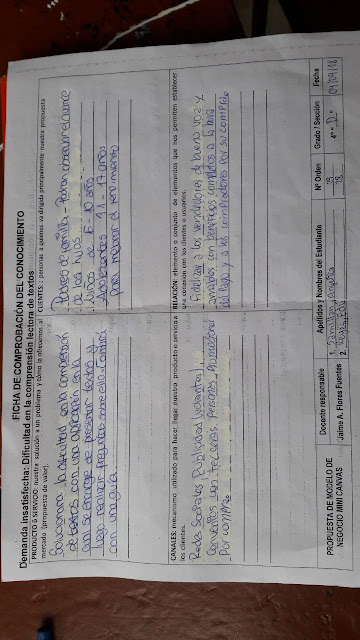 FICHA DE COMPROBACIÓN DEL CONOCIMIENTO
Demanda insatisfecha: Dificultad en la comprensión lectora de textos
PRODUCTO O SERVICIO: nuestra solución a un problema y cómo la ofrecemos al mercado (propuesta de valor).
Solucionara la dificultad en la comprensión
de textos con una aplicación en la
cual se encarge de presentar textos y
luego realizar preguntas sobre ello. Contará
con una guía.
CLIENTES: personas a quienes va dirigida principalmente nuestra propuesta
Padres de familia - Podran observar el avance
de los hijos
Niños de 6 - 10 años
Adolescentes 11 - 17 años
Para mejorar el
CANALES: mecanismo utilizado para hacer llegar nuestro producto o servicio a los clientes.
Redes Sociales, Publicidad (volantes),
Convenios con terceras Personas, promocionar
Por compra
RELACIÓN: elemento o conjunto de elementos que nos permiten establecer una conexión con los clientes o usuarios.
Fidelizar a los vendedores de buena voz y
amables con beneficios completos a la hora
del pago y a los compradores por su compra
PROPUESTA DE MODELO DE NEGOCIO MINI CANVAS
Docente responsable
Jaime A. Flores Fuentes
Apellidos y Nombres del Estudiante
1.
2.
N° Orden
28
Grado / Sección
4to "D"
Fecha
04/09/18